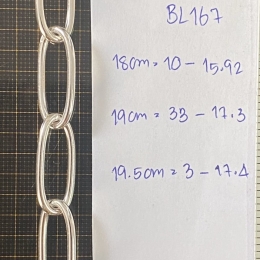 BL167
18cm = 10 - 15.92
19cm = 33 - 17.3
19.5cm = 3 - 17.4